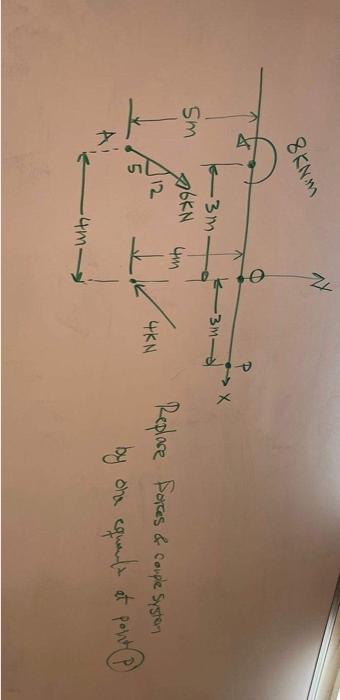 Y
8KN.m
O
P
X
3m
3m
5m
6KN
12
5
4m
4KN
A
4m
Replace Forces & Couple system
by one equivalent at point P